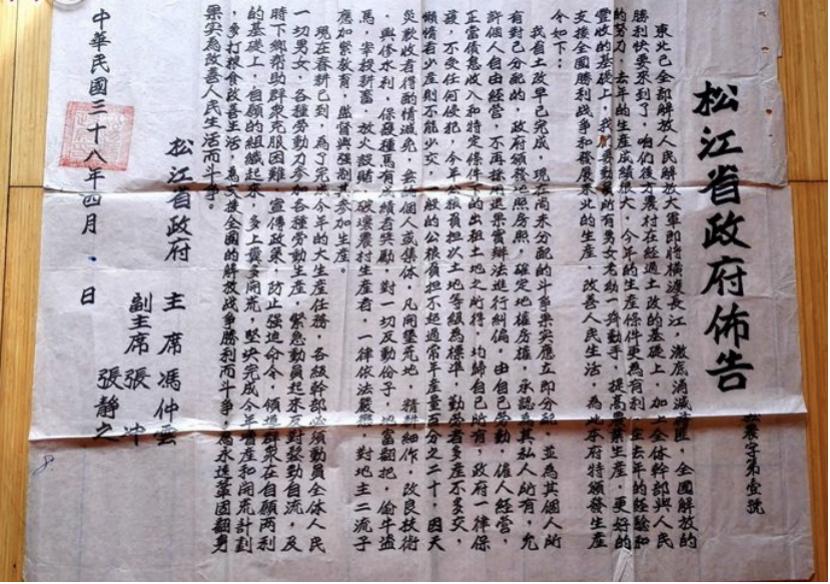 松江省政府佈告
農字第壹號
東北已全部解放人民解放大軍即將橫渡長江，澈底消滅，全國解放的
勝利快要來到了，咱們後方農村在經過土改的基礎上，加上全体幹部與人民
的努力，去年的生產成績很大，今年的生產條件更為有利，在去年的經驗和
豐收的基礎上，我們要動員所有男女老幼一齊動手，提高農業生產，更好的
支援全國勝利战爭和發展東北的生產，改善人民生活，為此本府特頒發生產
令如下：
我省土改早已完成，現在尚未分配的斗爭果实應立即分配，並為其個人所
有對已分配的，政府頒發地照房照，確定地權房權，承認為其私人所有，允
許個人自由經營，不再採用退果實辦法進行糾偏，由自己勞動，僱人經營，
正當債息收入和特定條件下的出租土地之所得，均歸自己所有，政府一律保
護，不受任何侵犯，今年公粮負担以土地等級為標準，勤勞者多產不多交，
懶惰者少產則不能少交，一般的公粮負担不超過常年產量百分之二十，因天
災歉收者得酌情減免，無論個人或集体，凡開墾荒地，精耕細作，改良技術
，興修水利，保發種馬有成績者獎勵，對一切反動份子，地富翻把，偷牛盜
馬，宰殺耕畜，放火設賭，破壞農村生產者，一律依法嚴懲，對地主二流子
應加緊教育，監督與强制其參加生產。
現在春耕已到，為了完成今年的大生產任務，各級幹部必須動員全体人民
一切男女，各種勞動力參加各種勞動生產，緊急動員起來反對發動自流，及
時下鄉帮助群衆克服困難，宣傳政策，防止强迫命令，領導群衆在自願兩利
的基礎上，自願的組織起來，多上糞多開荒，堅决完成今年增產和開荒計劃
，多打粮食改善生活，為支援全國的解放战爭勝利而斗爭，為永远鞏固翻身
果实為改善人民生活而斗爭。
松江省政府
主席馮仲雲
副主席張冲
張靜之
中華民國三十八年四月　日